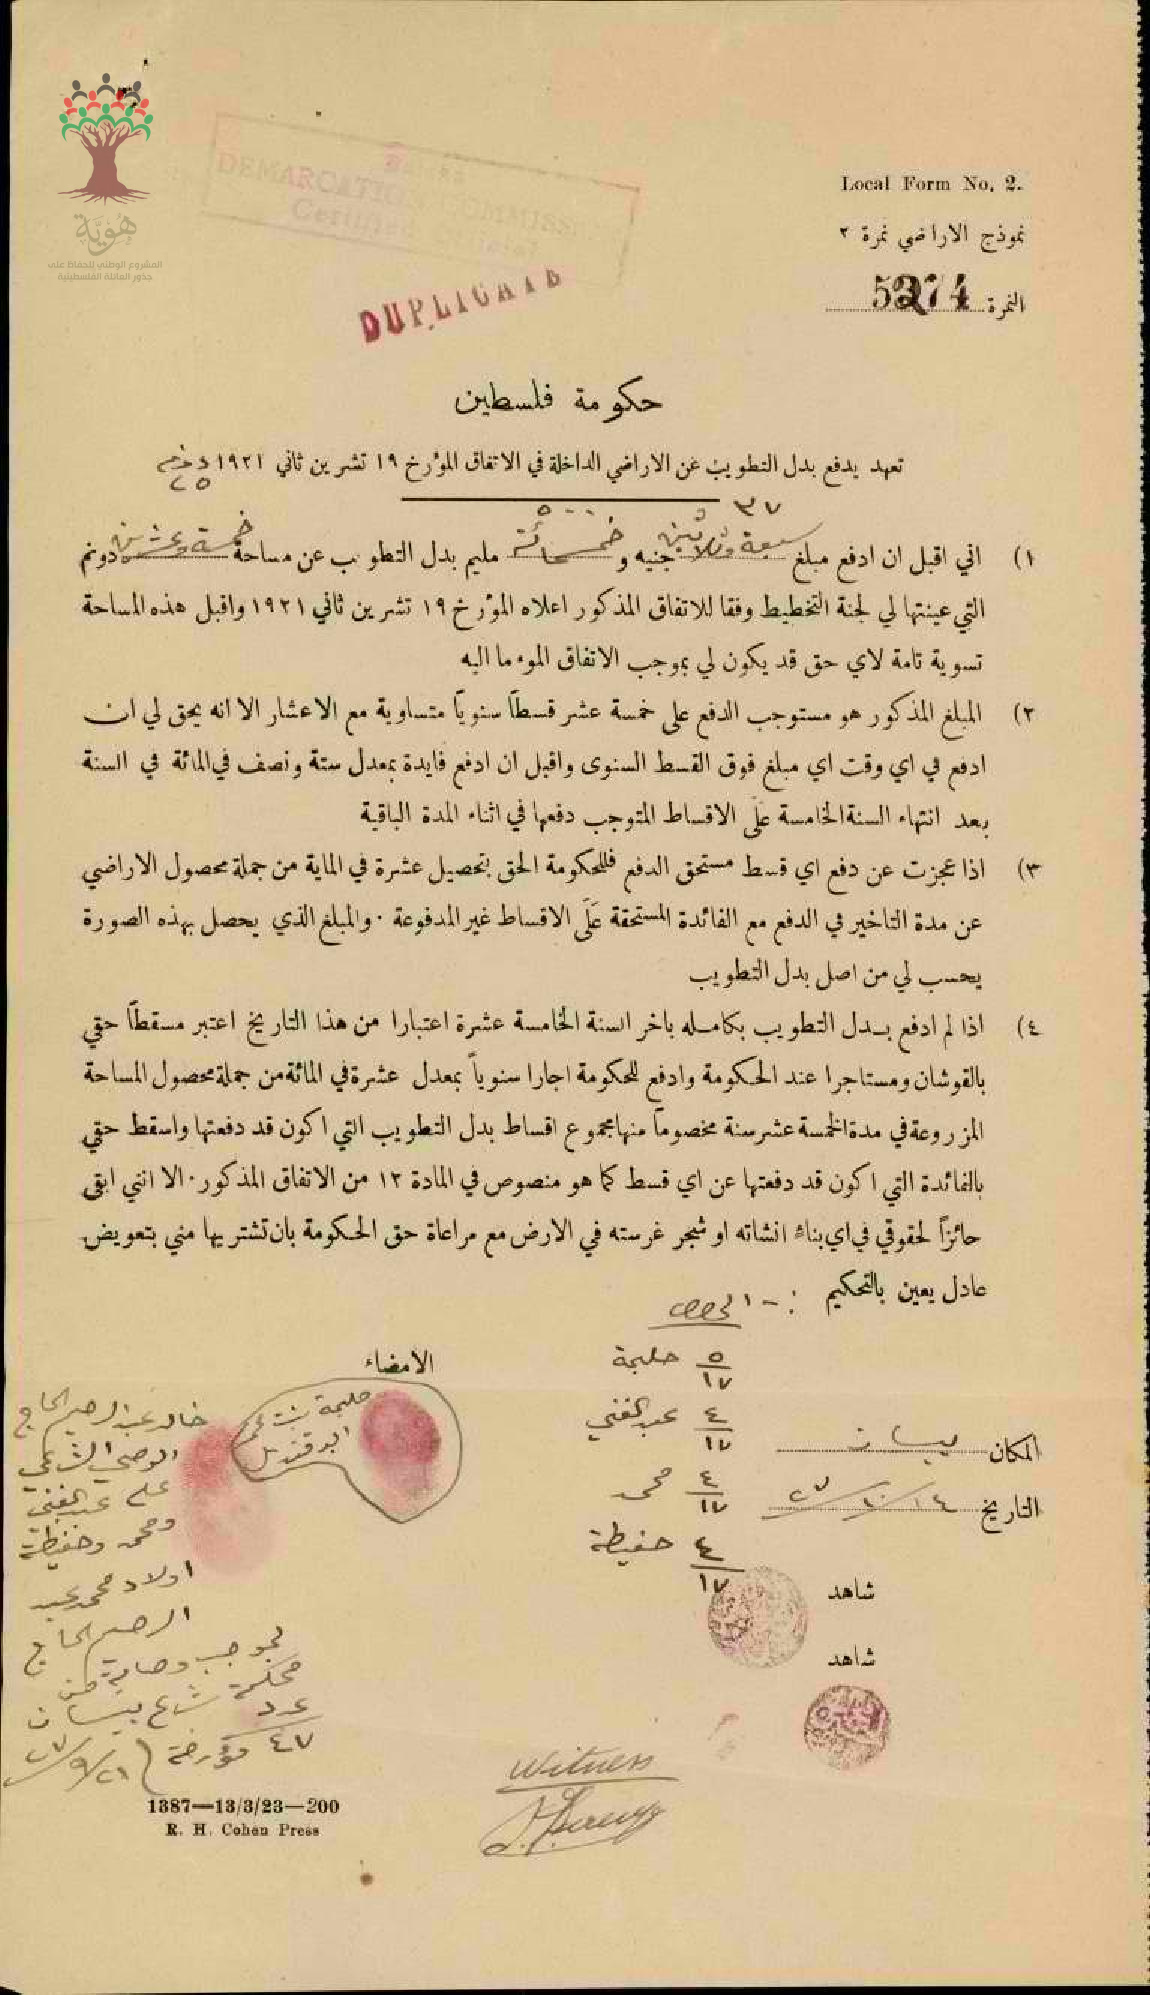 هُوِيَّة
المشروع الوطني للحفاظ على
جذور العائلة الفلسطينية
DEMARCATION COMMISSION
Certified
DUPLICATE
Local Form No. 2.
نموذج الاراضي نمرة ٢
النمرة 5274
حكومة فلسطين
تعهد يدفع بدل التطويب عن الاراضي الداخلة في الاتفاق المؤرخ ١٩ تشرين ثاني ١٩٢١
٢٥
٣٧ ٥٠٠
١) اني اقبل ان ادفع مبلغ سبعة وثلاثين جنيه و خمسمائة مليم بدل التطويب عن مساحة خمسة وعشرين دونم
التي عينتها لي لجنة التخطيط وفقا للاتفاق المذكور اعلاه المؤرخ ١٩ تشرين ثاني ١٩٢١ واقبل هذه المساحة
تسوية تامة لاي حق قد يكون لي بموجب الاتفاق الموء ما اليه
٢) المبلغ المذكور هو مستوجب الدفع على خمسة عشر قسطاً سنوياً متساوية مع الاعشار الا انه يحق لي ان
ادفع في اي وقت اي مبلغ فوق القسط السنوى واقبل ان ادفع فايدة بمعدل ستة ونصف في المائة في السنة
بعد انتهاء السنة الخامسة عَلَى الاقساط المتوجب دفعها في اثناء المدة الباقية
٣) اذا عجزت عن دفع اي قسط مستحق الدفع فللحكومة الحق بتحصيل عشرة في الماية من جملة محصول الاراضي
عن مدة التاخير في الدفع مع الفائدة المستحقة عَلَى الاقساط غير المدفوعة ٠ والمبلغ الذي يحصل بهذه الصورة
يحسب لي من اصل بدل التطويب
٤) اذا لم ادفع بدل التطويب بكامله باخر السنة الخامسة عشرة اعتبارا من هذا التاريخ اعتبر مسقطاً حقي
بالقوشان ومستاجرا عند الحكومة وادفع للحكومة اجارا سنوياً بمعدل عشرة في المائة من جملة محصول المساحة
المزروعة في مدة الخمسة عشر سنة مخصوماً منها مجموع اقساط بدل التطويب التي اكون قد دفعتها واسقط حقي
بالفائدة التي اكون قد دفعتها عن اي قسط كما هو منصوص في المادة ١٢ من الاتفاق المذكور ٠ الا انني ابقى
حائزاً لحقوقي في اي بناء انشاته او شجر غرسته في الارض مع مراعاة حق الحكومة بان تشتريها مني بتعويض
عادل يعين بالتحكيم
الحصص
٥/١٧ حليمة
٤/١٧ عبد الغني
٤/١٧ محمد
٤/١٧ حفيظة
الامضاء
حليمة بنت
خالد عبد الرحيم الحاج
الوصي الشرعي
على عبد الغني
ومحمد وحفيظة
اولاد محمد عبد
الرحيم الحاج
بموجب وصاية من
محكمة شرع بيسان
عدد
٤٧ مؤرخة ٢١/٩/٢٧
المكان بيسان
التاريخ ١٤/١٠/٢٧
شاهد
شاهد
Witness
1387—13/3/23—200
R. H. Cohen Press